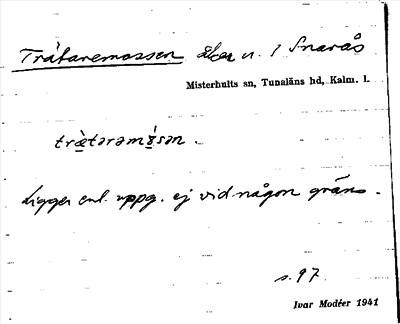 Trätaremossen åker n. i Snarås
Misterhults sn, Tunaläns hd, Kalm. l.
trætarəmɷ́sən.
Ligger enl. uppg. ej vid någon gräns.
s. 97.
Ivar Modéer 1941